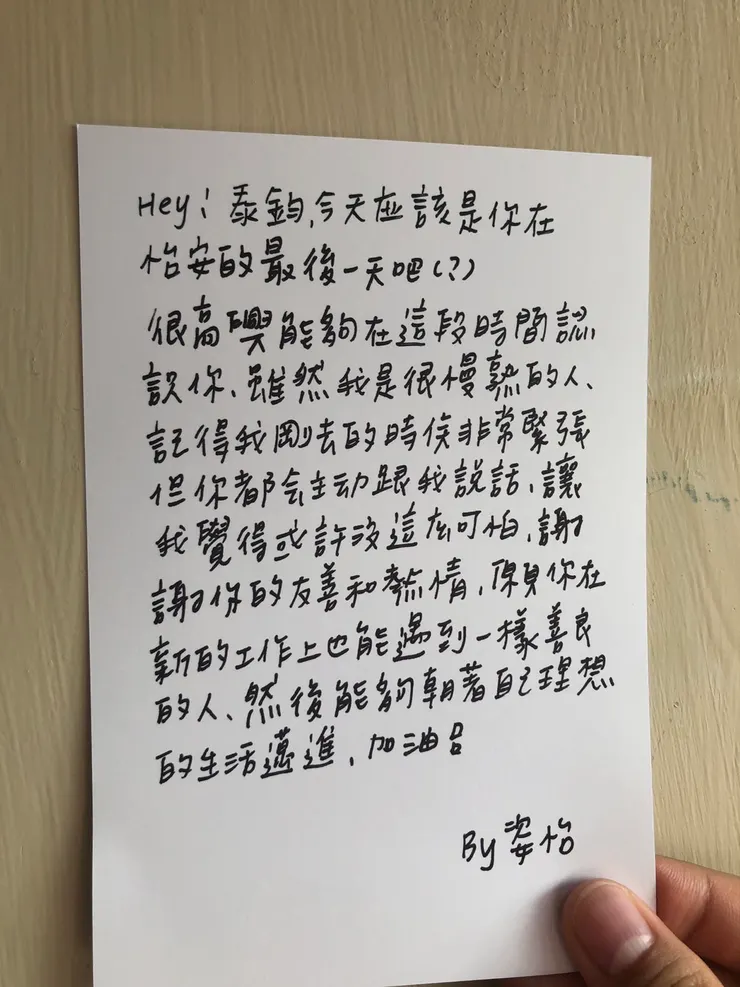 Hey! 泰鈞,今天应該是你在
怡安的最後一天吧(?)
很高興能夠在這段時間認
識你、雖然我是很慢熟的人、
記得我剛去的時侯非常緊張
但你都会主动跟我說話、讓
我覺得或許沒這庅可怕、謝
謝你的友善和熱情、願你在
新的工作上也能遇到一樣善良
的人、然後能夠朝著自己理想
的生活邁進、加油呂
By 姿怡